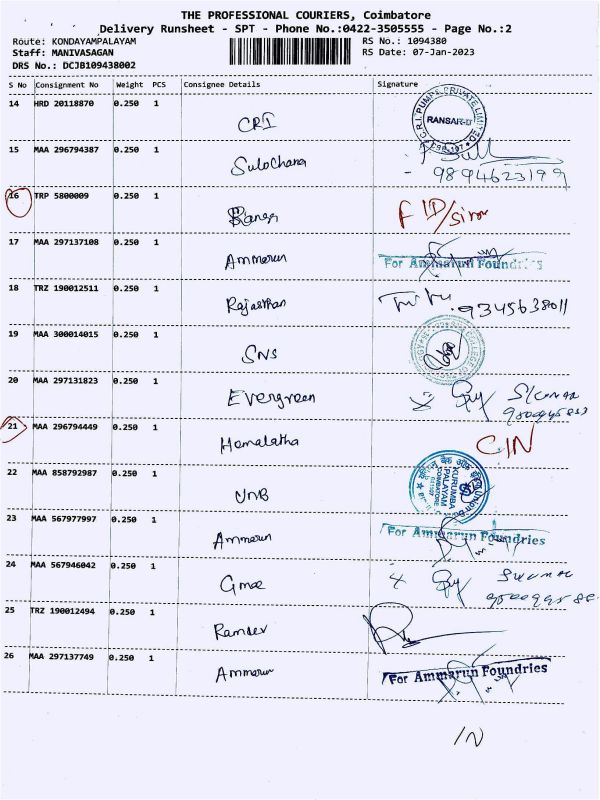 THE PROFESSIONAL COURIERS, Coimbatore
Delivery Runsheet - SPT - Phone No.:0422-3505555 - Page No.:2
Route: KONDAYAMPALAYAM
RS No.: 1094380
Staff: MANIVASAGAN
RS Date: 07-Jan-2023
DRS No.: DCJB109438002
S No Consignment No Weight PCS Consignee Details Signature
14 HRD 20118870 0.250 1 CRI
C.R.I. PUMPS PRIVATE LIMITED
15 MAA 296794387 0.250 1 Sulochana
- 9894623199
16 TRP 5800009 0.250 1
17 MAA 297137108 0.250 1 Ammarun For Ammarun Foundries
18 TRZ 190012511 0.250 1 Rajasthan 9345638011
19 MAA 300014015 0.250 1 SNS
20 MAA 297131823 0.250 1 Evergreen
21 MAA 296794449 0.250 1 Hemalatha C/N
22 MAA 858792987 0.250 1 UNB
KURUMBA
PALAYAM
COIMBATORE
23 MAA 567977997 0.250 1 Ammarun For Ammarun Foundries
24 MAA 567946042 0.250 1
25 TRZ 190012494 0.250 1 Ramdev
26 MAA 297137749 0.250 1 Ammarun For Ammarun Foundries
IN